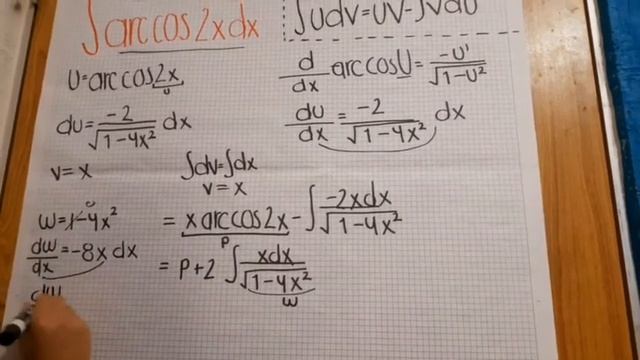 ∫arccos2xdx
∫UdV=UV-∫VdU
U=arccos2x
u
d/dx arccosU = -U'/√1-U²
du = -2/√1-4x² dx
du/dx = -2/√1-4x² dx
v=x
∫dv=∫dx
v=x
w=1-4x²
= x arccos2x - ∫ -2xdx/√1-4x²
P
dw/dx = -8x dx
= P+2 ∫ xdx/√1-4x²
w